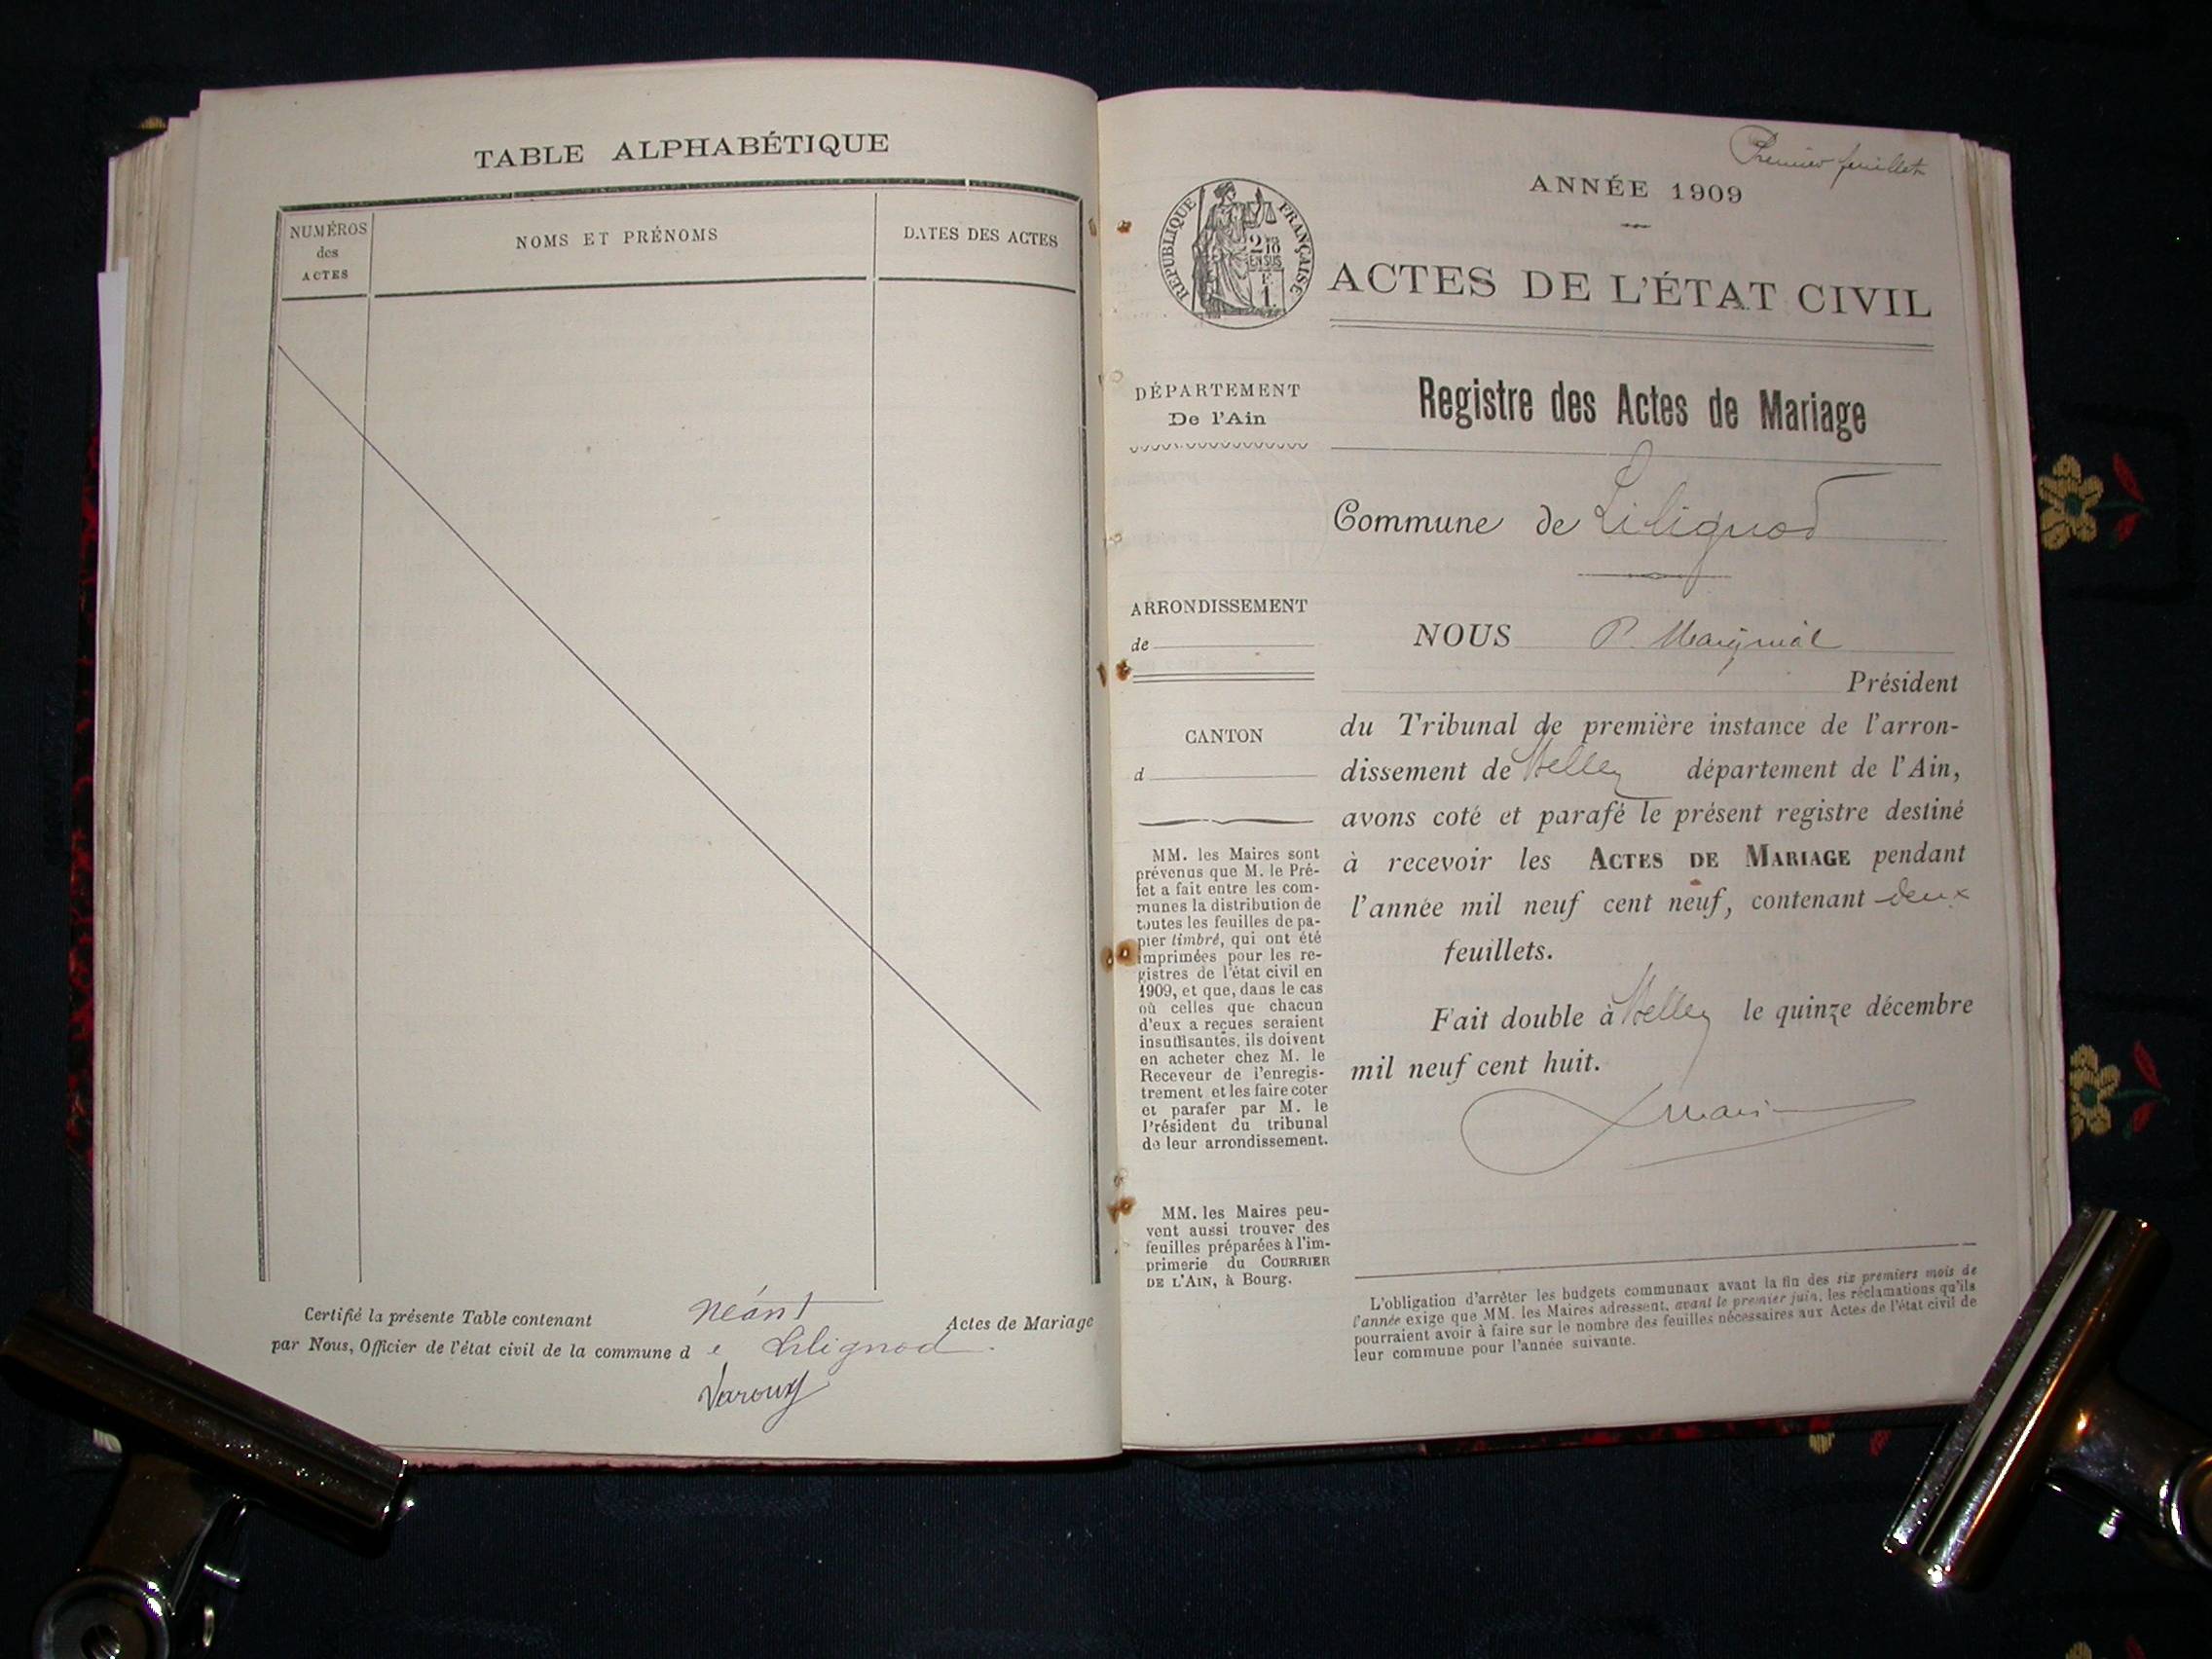 TABLE ALPHABÉTIQUE
NUMÉROS
des
ACTES
NOMS ET PRÉNOMS
DATES DES ACTES
Certifié la présente Table contenant néant Actes de Mariage
par Nous, Officier de l'état civil de la commune d e Lilignod.
Premier feuillet
ANNÉE 1909
RÉPUBLIQUE FRANÇAISE
2/10
EN SUS
F.
1.
ACTES DE L'ÉTAT CIVIL
DÉPARTEMENT
De l'Ain
Registre des Actes de Mariage
Commune de Lilignod
ARRONDISSEMENT
de
CANTON
d
MM. les Maires sont
prévenus que M. le Pré-
fet a fait entre les com-
munes la distribution de
toutes les feuilles de pa-
pier timbré, qui ont été
imprimées pour les re-
gistres de l'état civil en
1909, et que, dans le cas
où celles que chacun
d'eux a reçues seraient
insuffisantes, ils doivent
en acheter chez M. le
Receveur de l'enregis-
trement et les faire coter
et parafer par M. le
Président du tribunal
de leur arrondissement.
MM. les Maires peu-
vent aussi trouver des
feuilles préparées à l'im-
primerie du COURRIER
DE L'AIN, à Bourg.
NOUS P.
Président
du Tribunal de première instance de l'arron-
dissement de Belley département de l'Ain,
avons coté et parafé le présent registre destiné
à recevoir les ACTES DE MARIAGE pendant
l'année mil neuf cent neuf, contenant deux
feuillets.
Fait double à Belley le quinze décembre
mil neuf cent huit.
L'obligation d'arrêter les budgets communaux avant la fin des six premiers mois de
l'année exige que MM. les Maires adressent, avant le premier juin, les réclamations qu'ils
pourraient avoir à faire sur le nombre des feuilles nécessaires aux Actes de l'état civil de
leur commune pour l'année suivante.